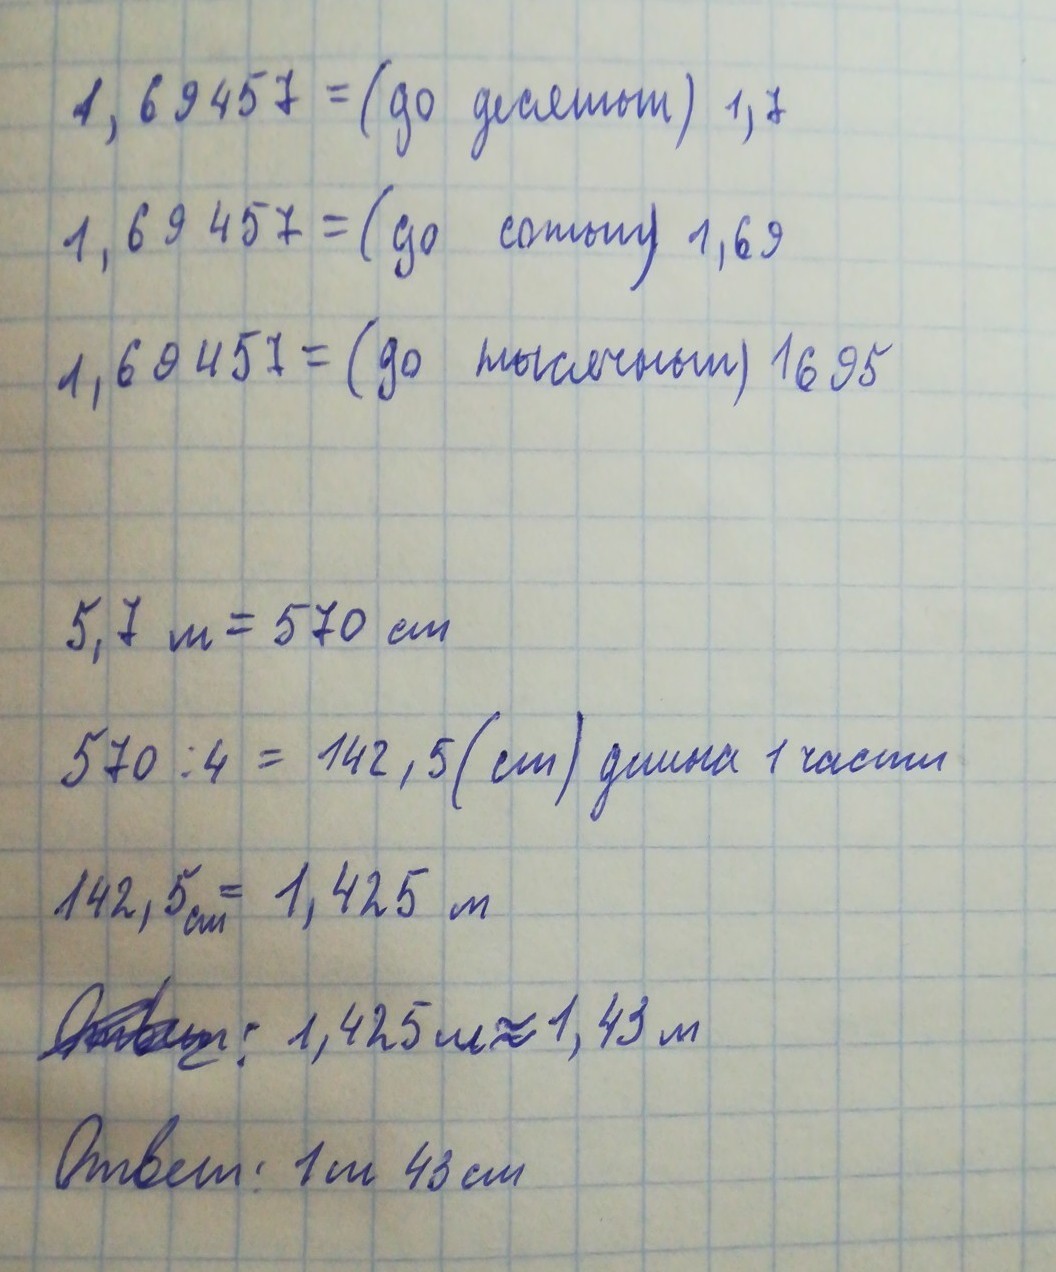 1,69457 = (до десятых) 1,7
1,69457 = (до сотых) 1,69
1,69457 = (до тысячных) 1695
5,7 м = 570 см
570 : 4 = 142,5 (см) длина 1 части
142,5 см = 1,425 м
Ответ: 1,425 м ≈ 1,43 м
Ответ: 1 м 43 см